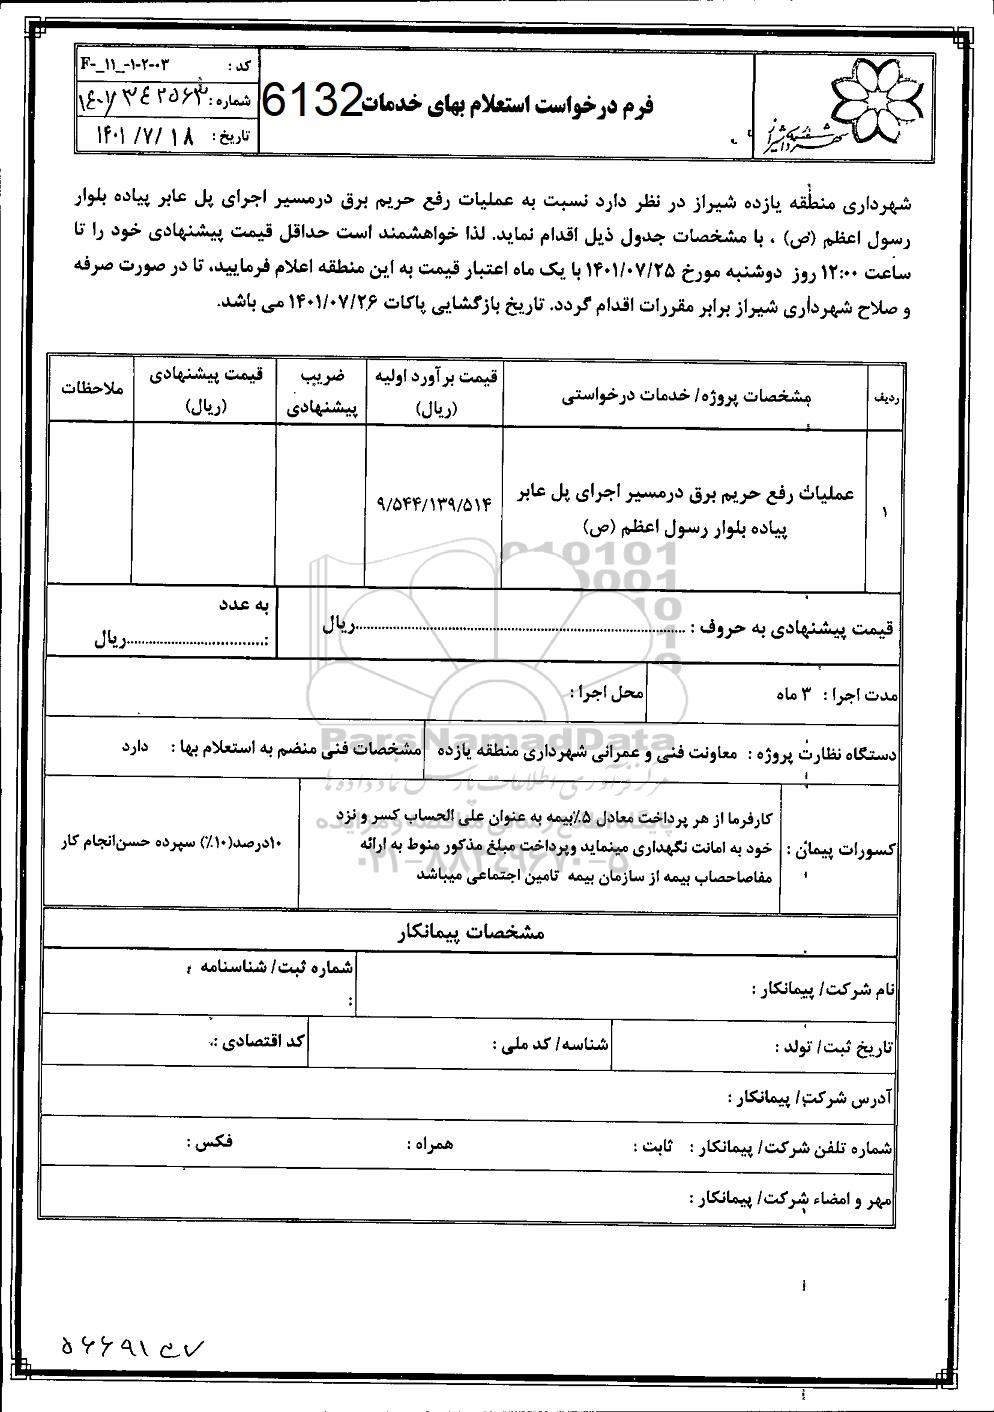 کد : F-_۱۱_-۱-۲-۰۳
شماره : ۱۴۰۱/۳۴۲۵۶۳
تاریخ : ۱۴۰۱/۷/۱۸
فرم درخواست استعلام بهای خدمات 6132
شهرداری شیراز
شهرداری منطقه یازده شیراز در نظر دارد نسبت به عملیات رفع حریم برق درمسیر اجرای پل عابر پیاده بلوار
رسول اعظم (ص) ، با مشخصات جدول ذیل اقدام نماید. لذا خواهشمند است حداقل قیمت پیشنهادی خود را تا
ساعت ۱۲:۰۰ روز دوشنبه مورخ ۱۴۰۱/۰۷/۲۵ با یک ماه اعتبار قیمت به این منطقه اعلام فرمایید، تا در صورت صرفه
و صلاح شهرداری شیراز برابر مقررات اقدام گردد. تاریخ بازگشایی پاکات ۱۴۰۱/۰۷/۲۶ می باشد.
ردیف
مشخصات پروژه/ خدمات درخواستی
قیمت برآورد اولیه
(ریال)
ضریب
پیشنهادی
قیمت پیشنهادی
(ریال)
ملاحظات
۱
عملیات رفع حریم برق درمسیر اجرای پل عابر
پیاده بلوار رسول اعظم (ص)
۹/۵۴۴/۱۳۹/۵۱۴
قیمت پیشنهادی به حروف : ........................................ریال
به عدد
:................................ریال
مدت اجرا : ۳ ماه
محل اجرا :
دستگاه نظارت پروژه : معاونت فنی و عمرانی شهرداری منطقه یازده
مشخصات فنی منضم به استعلام بها : دارد
کسورات پیمان :
کارفرما از هر پرداخت معادل ۵٪بیمه به عنوان علی الحساب کسر و نزد
خود به امانت نگهداری مینماید وپرداخت مبلغ مذکور منوط به ارائه
مفاصاحصاب بیمه از سازمان بیمه تامین اجتماعی میباشد
۱۰درصد(۱۰٪) سپرده حسن‌انجام کار
مشخصات پیمانکار
نام شرکت/ پیمانکار :
شماره ثبت/ شناسنامه
:
تاریخ ثبت/ تولد :
شناسه/ کد ملی :
کد اقتصادی :
آدرس شرکت/ پیمانکار :
شماره تلفن شرکت/ پیمانکار : ثابت :
همراه :
فکس :
مهر و امضاء شرکت/ پیمانکار :
ParsNamadData
۰۲۱-۸۸۳۴۹۶۷۰-۵